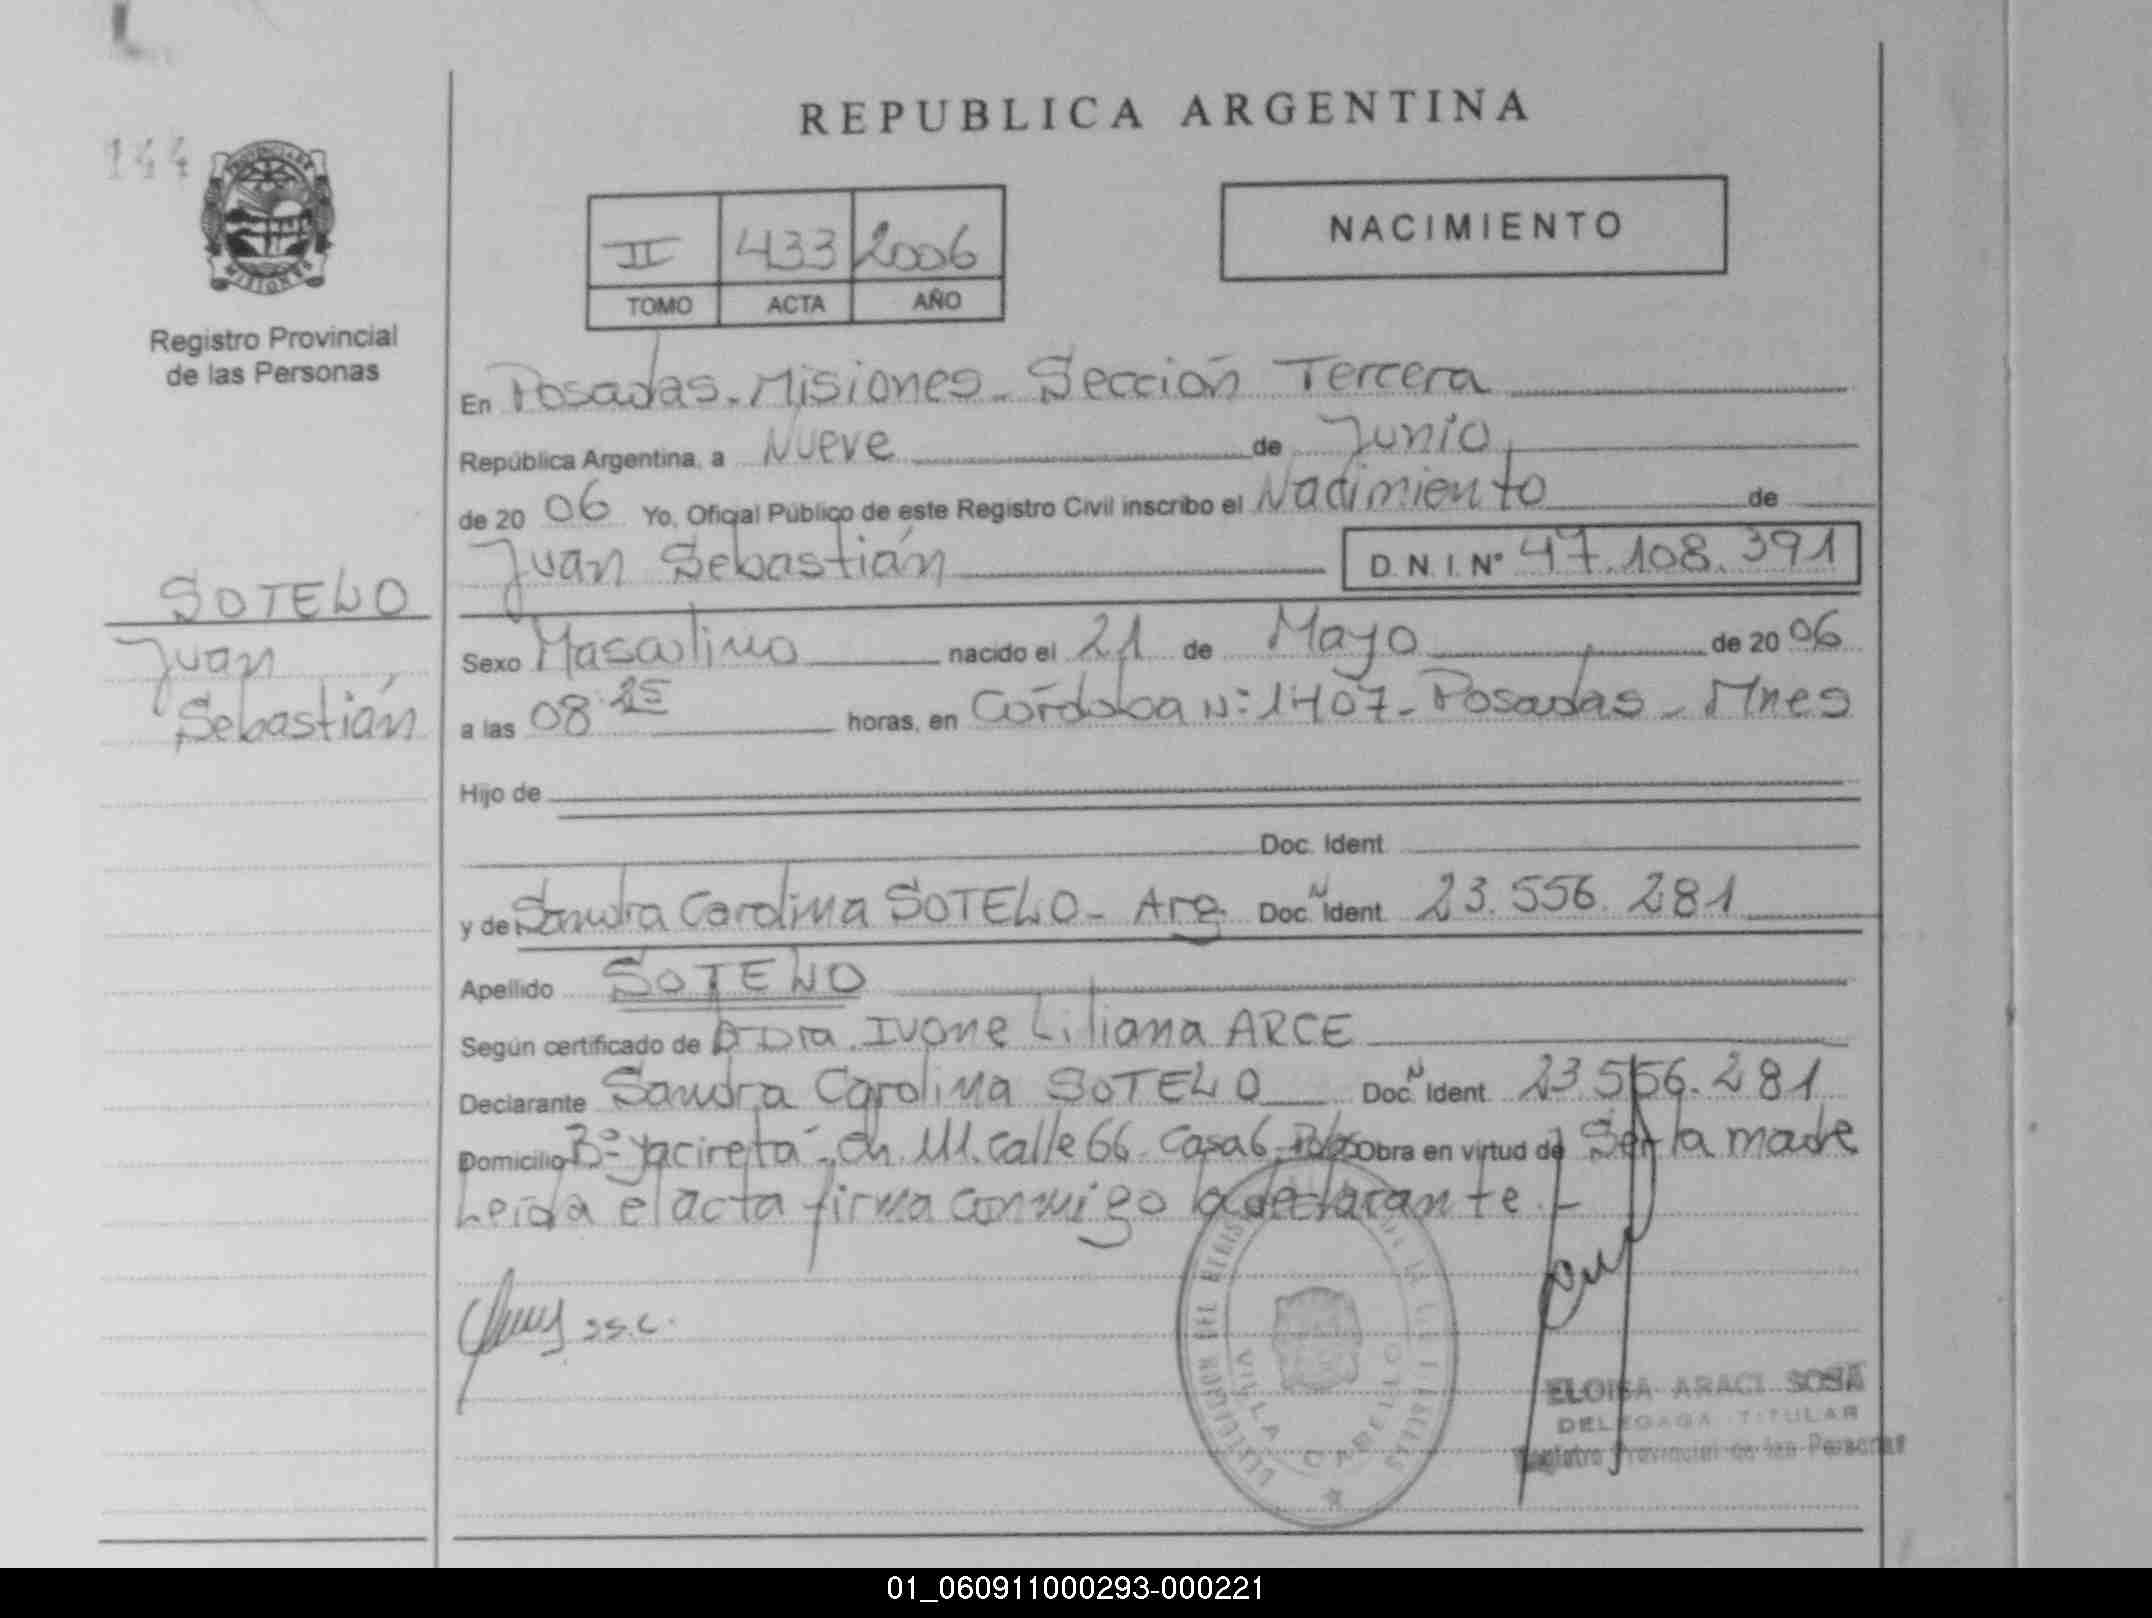 REPUBLICA ARGENTINA
144
PROVINCIA DE MISIONES
Registro Provincial
de las Personas
II 433 2006
TOMO ACTA AÑO
NACIMIENTO
En Posadas-Misiones-Sección Tercera
República Argentina, a Nueve de Junio
de 20 06 Yo, Oficial Público de este Registro Civil inscribo el Nacimiento de
Juan Sebastián D.N.I. Nº 47.108.391
SOTELO
Juan
Sebastián
Sexo Masculino nacido el 21 de Mayo de 20 06
a las 08:25 horas, en Córdoba Nº 1407-Posadas-Mnes
Hijo de
Doc. Ident.
y de Sandra Carolina SOTELO-Arg. Doc.N Ident. 23.556.281
Apellido SOTELO
Según certificado de Dra. Ivone Liliana ARCE
Declarante Sandra Carolina SOTELO Doc.N Ident. 23.556.281
Domicilio Bº Yacireta-Ch. 111. Calle 66-Casa 6-Pdas Obra en virtud de Ser la madre
Leída el acta firma conmigo la declarante.-
S.S.C.
DELEGACION DEL REGISTRO
VILLA CABELLO
ELOISA ARACI SOSA
DELEGADA TITULAR
Registro Provincial de las Personas
01_060911000293-000221